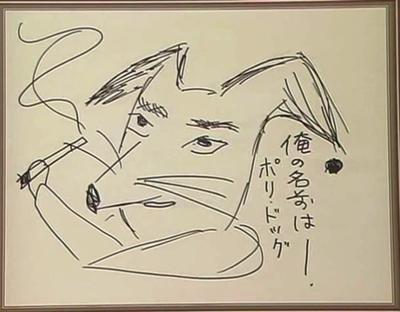 俺の名前はー！
ポリ・ドッグ